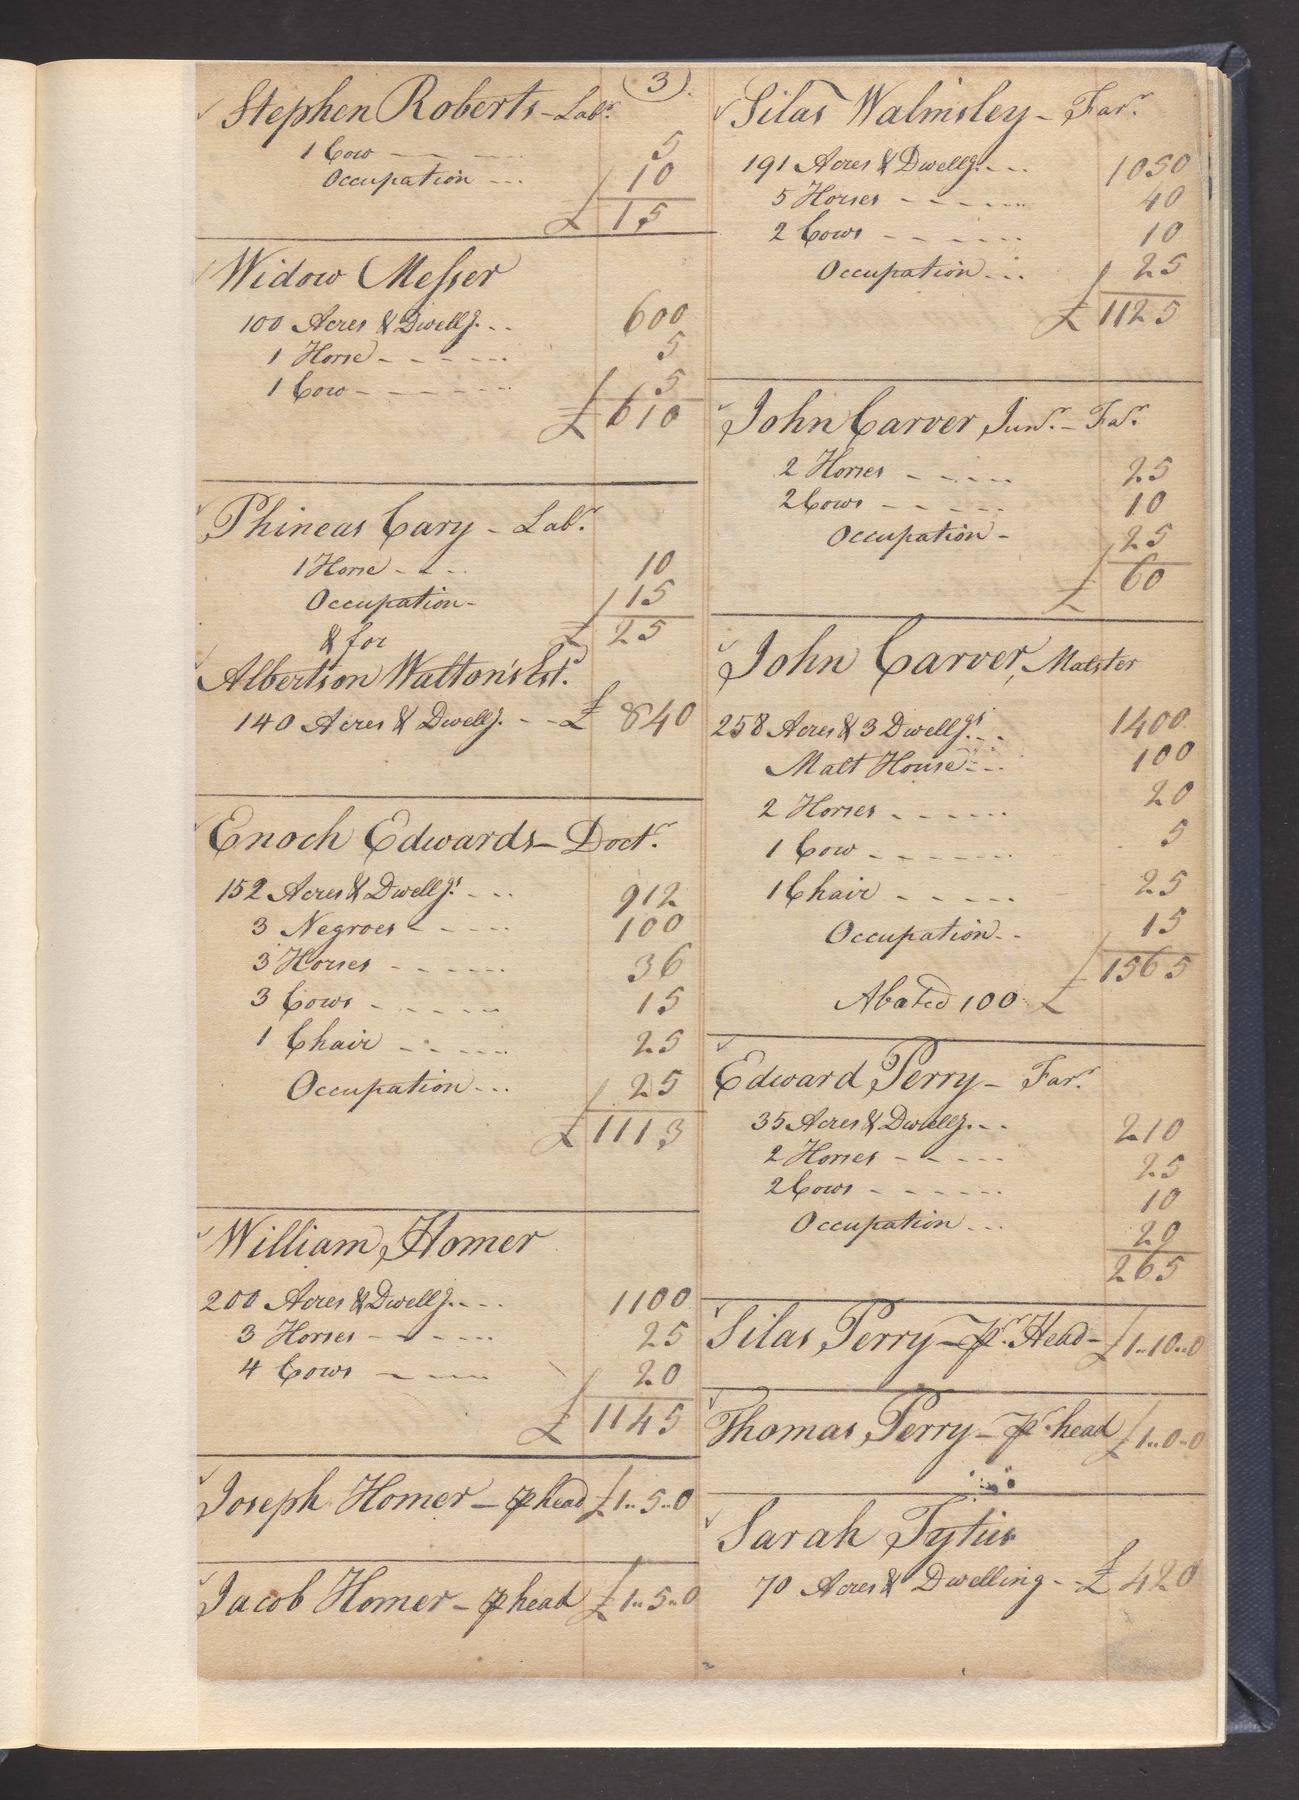 (3).
Stephen Roberts - Labr.
1 Cow 5
Occupation 10
£ 15
Widow Messer
100 Acres & Dwellg. 600
1 Horse 5
1 Cow 5
£ 610
Phineas Cary - Labr.
1 Horse 10
Occupation 15
& for £ 25
Albertson Walton's Estd.
140 Acres & Dwellg. £ 840
Enoch Edwards - Doctr.
152 Acres & Dwellgs. 912
3 Negroes 100
3 Horses 36
3 Cows 15
1 Chair 25
Occupation 25
£ 1113
William Homer
200 Acres & Dwellg. 1100
3 Horses 25
4 Cows 20
£ 1145
Joseph Homer - p head £1..5..0
Jacob Homer - p head £1..5..0
Silas Walmsley - Farr.
191 Acres & Dwellg. 1050
5 Horses 40
2 Cows 10
Occupation 25
£ 1125
John Carver Junr. - Far.
2 Horses 25
2 Cows 10
Occupation 25
£ 60
John Carver, Malster
258 Acres & 3 Dwellgs. 1400
Malt House 100
2 Horses 20
1 Cow 5
1 Chair 25
Occupation 15
£ 1565
Abated 100
Edward Perry - Farr.
35 Acres & Dwellg. 210
2 Horses 25
2 Cows 10
Occupation 20
265
Silas Perry - pr. Head - £1..10..0
Thomas Perry - pr. head £1..0..0
Sarah Tytus
70 Acres & Dwelling - - £ 420